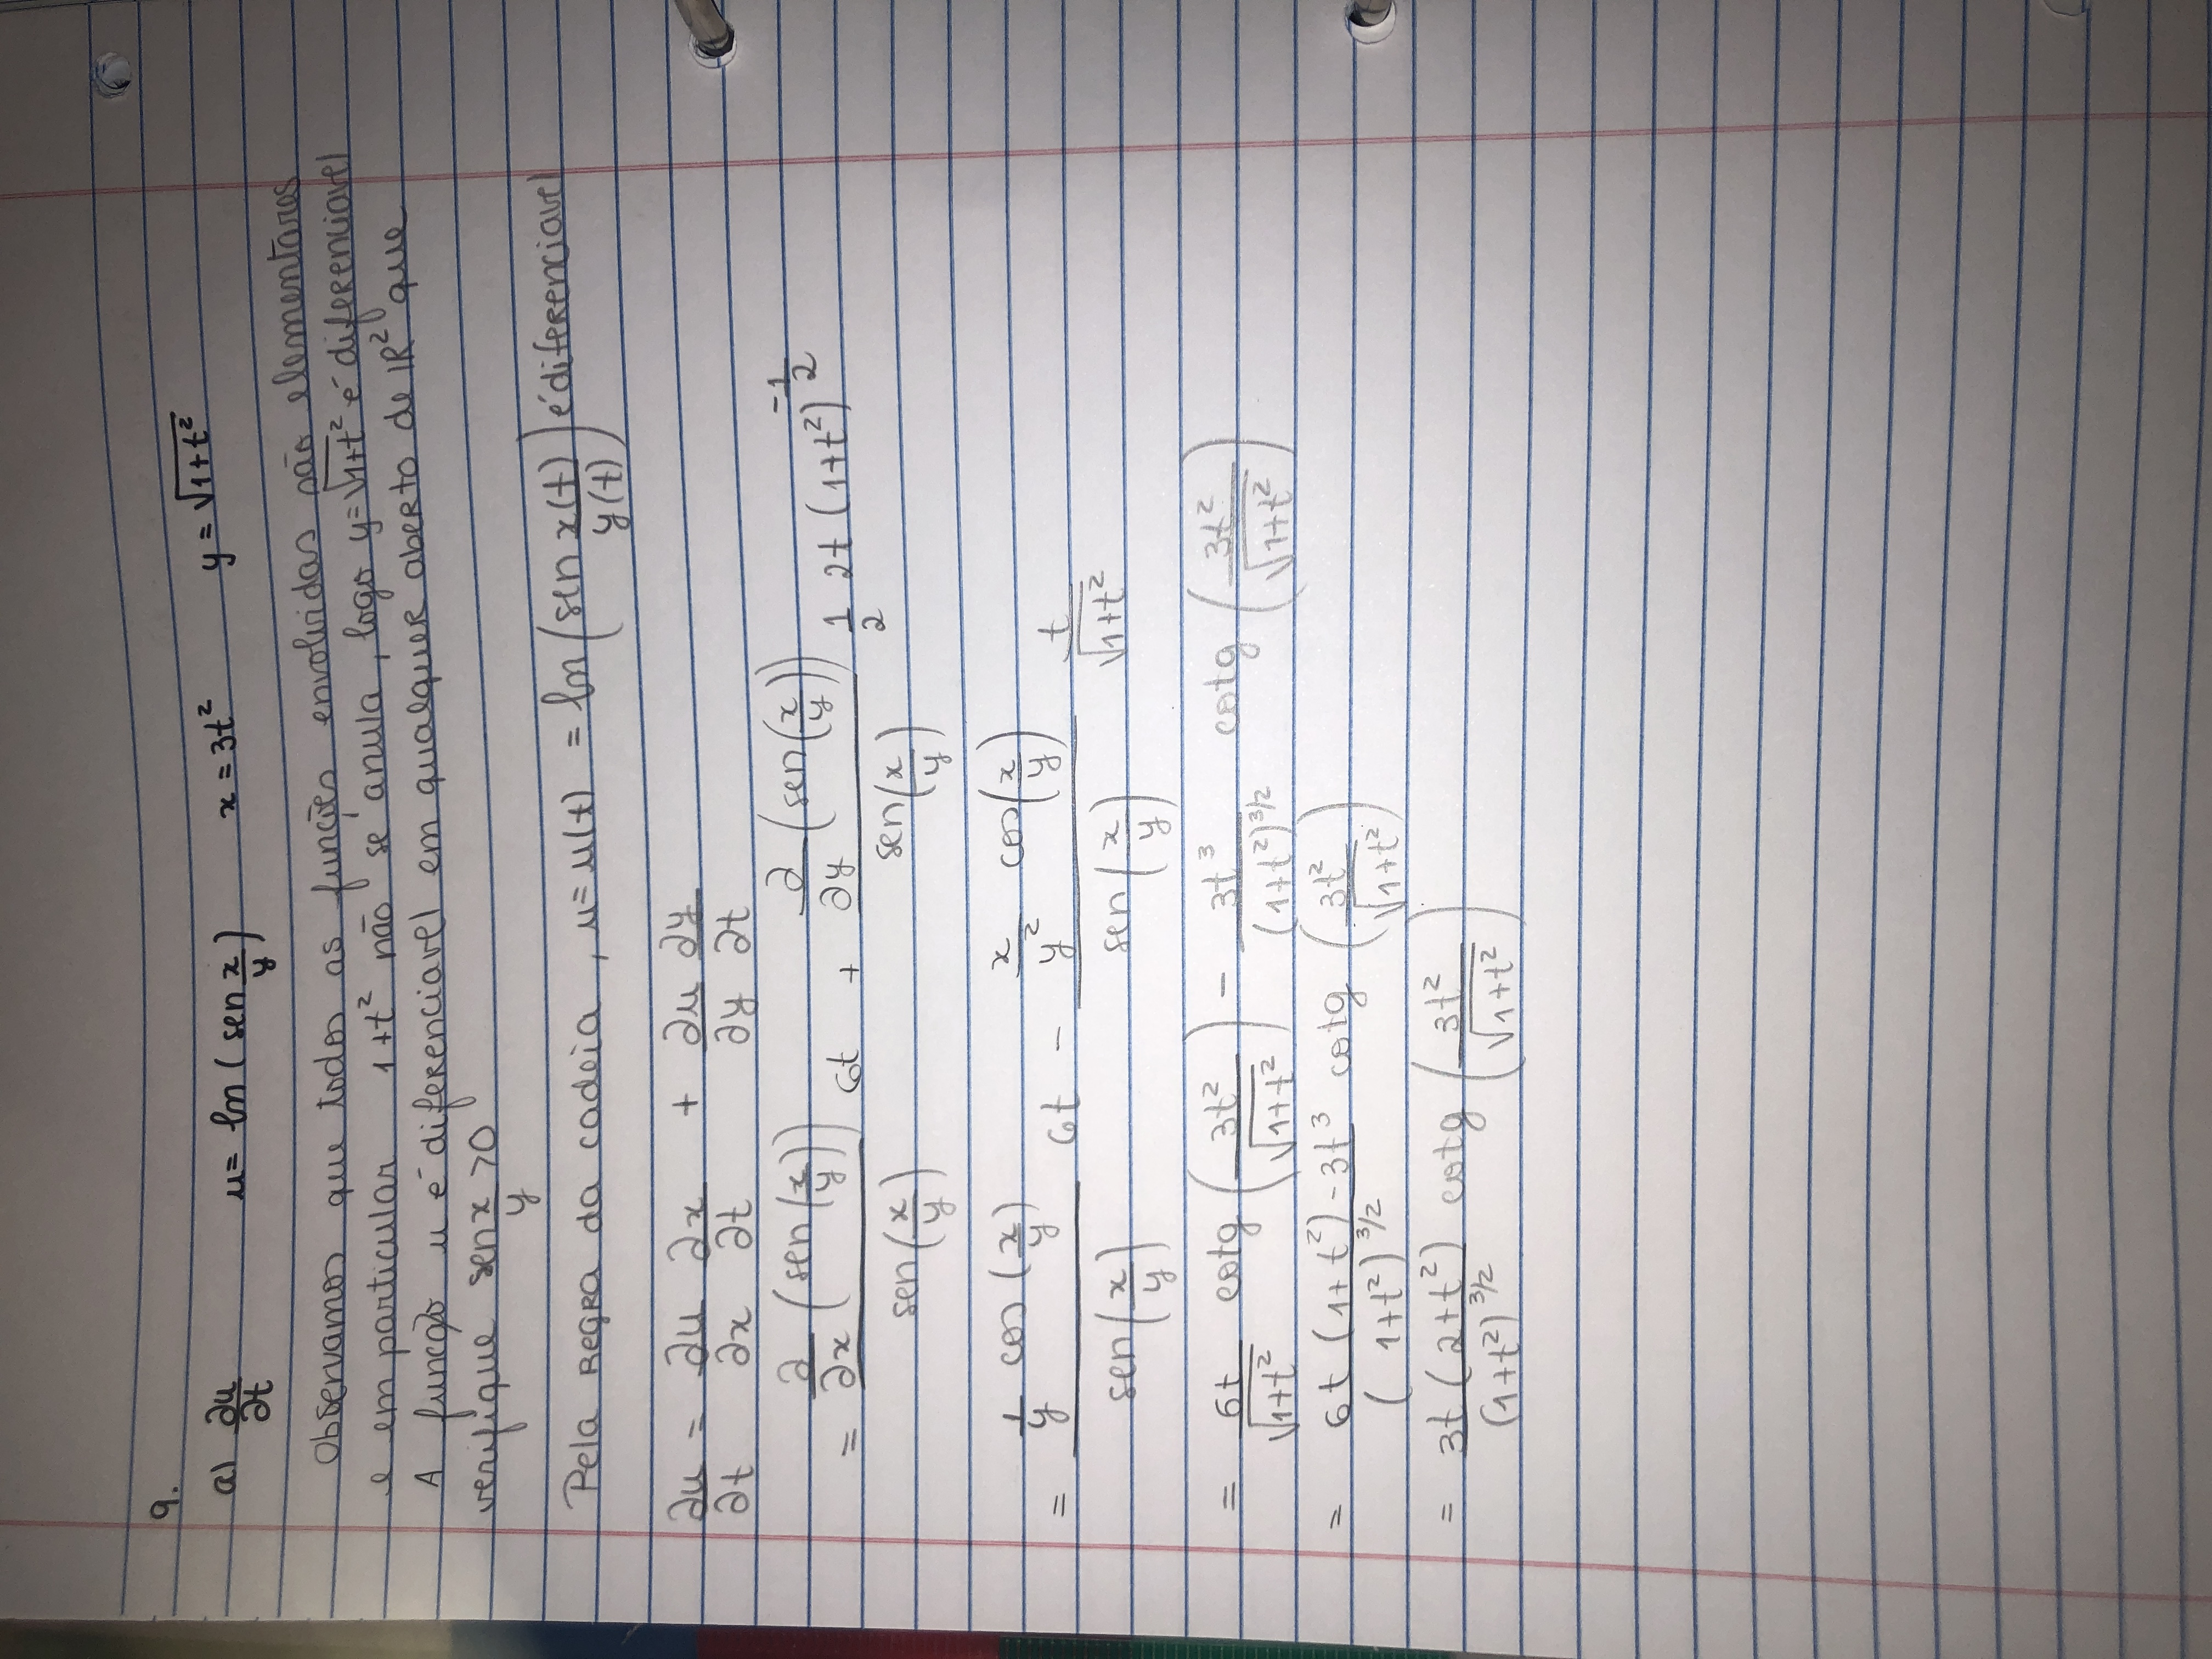 9.
a) ∂u/∂t   u = ln(sen x/y)   x = 3t²   y = √(1+t²)
Observamos que todos as funções envolvidas são elementares
e em particular 1+t² não se anula, logo y=√(1+t²) é diferenciavel
A função u é diferenciavel em qualquer aberto de IR² que
verifique sen x/y >0
Pela REGRA da cadeia, u=u(t) = ln(sen x(t)/y(t)) é diferenciavel
∂u/∂t = ∂u/∂x ∂x/∂t + ∂u/∂y ∂y/∂t
= (∂/∂x (sen(x/y)))/(sen(x/y)) 6t + (∂/∂y (sen(x/y)))/(sen(x/y)) 1/2 2t (1+t²)^(-1/2)
= (1/y cos(x/y))/(sen(x/y)) 6t - (x/y² cos(x/y))/(sen(x/y)) t/√(1+t²)
= 6t/√(1+t²) cotg(3t²/√(1+t²)) - 3t³/(1+t²)^(3/2) cotg(3t²/√(1+t²))
= (6t(1+t²)-3t³)/(1+t²)^(3/2) cotg(3t²/√(1+t²))
= 3t(2+t²)/(1+t²)^(3/2) cotg(3t²/√(1+t²))